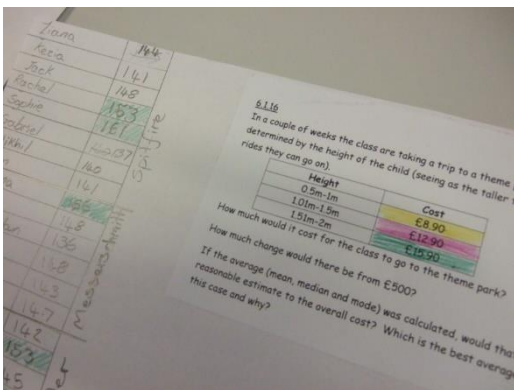 Ziana 144
Kezia 141
Jack 148
Rachel 153
Sophie 161
137
140
141
148
136
148
143
147
142
153
45
Spitfire
Messerschmitt
6.1.16
In a couple of weeks the class are taking a trip to a theme
determined by the height of the child (seeing as the taller
rides they can go on).
Height Cost
0.5m-1m £8.90
1.01m-1.5m £12.90
1.51m-2m £15.90
How much would it cost for the class to go to the theme park?
How much change would there be from £500?
If the average (mean, median and mode) was calculated, would tha
reasonable estimate to the overall cost? Which is the best averag
this case and why?